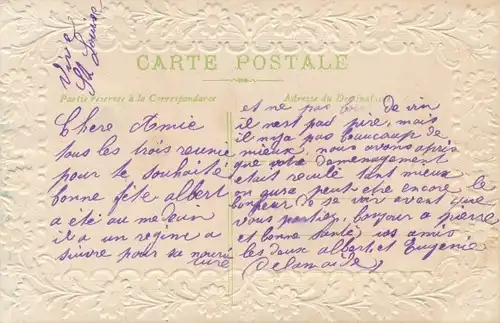 Vive
St Louise
CARTE POSTALE
Partie réservée à la Correspondance
Adresse du Destinataire
Chere Amie
tous les trois reunie
pour te souhaité
bonne fête albert
a été au
il a un regime a
suivre pour sa nouri
ture
et ne pas boire de vin
il nest pas pire, mais
il nya pas beaucoup de
mieux, nous avons apris
que votre demenagement
etait reculé tant mieux
on aura peut etre encore le
bonheur de se voir avant que
vous partiez, bonjour a pierre
et bonne santé, vos amis
les deux albert, et Eugénie